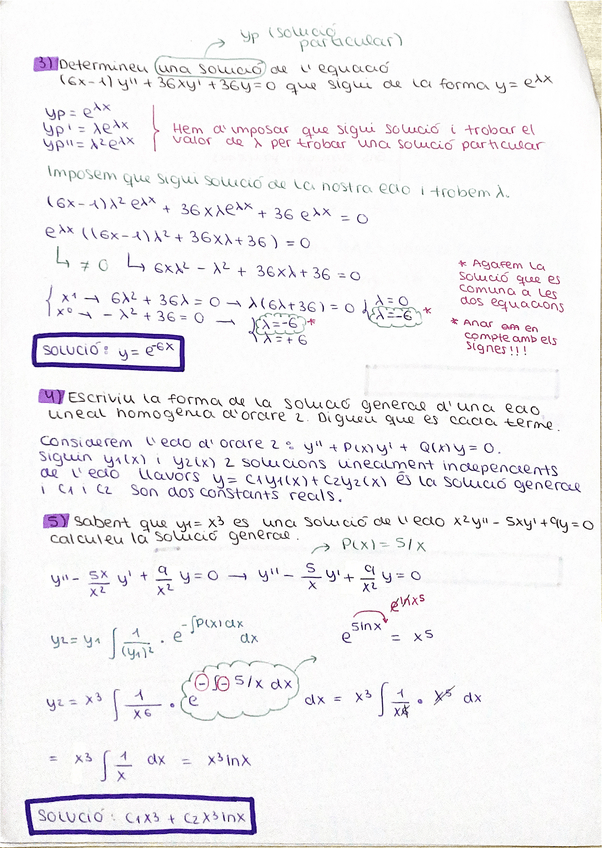 yp (solució
particular)
3) Determineu una solució de l'equació
(6x-1) y'' + 36xy' + 36y = 0 que sigui de la forma y = e^λx
yp = e^λx
yp' = λe^λx
yp'' = λ²e^λx
Hem d'imposar que sigui solució i trobar el
valor de λ per trobar una solució particular
Imposem que sigui solució de la nostra edo i trobem λ.
(6x-1)λ² e^λx + 36xλe^λx + 36 e^λx = 0
e^λx ((6x-1)λ² + 36xλ + 36) = 0
↳ ≠ 0 ↳ 6xλ² - λ² + 36xλ + 36 = 0
x¹ → 6λ² + 36λ = 0 → λ(6λ+36) = 0 { λ=0
λ=-6 *
x⁰ → -λ² + 36 = 0 → { λ=-6 *
λ=+6
* Agafem la
solució que es
comuna a les
dos equacions
* Anar am en
compte amb els
signes!!!
SOLUCIÓ: y = e^-6x
4) Escriviu la forma de la solució general d'una edo
lineal homogènia d'ordre 2. Digueu que es cada terme.
Considerem l'edo d'ordre 2: y'' + P(x)y' + Q(x)y = 0.
Siguin y1(x) i y2(x) 2 solucions linealment independents
de l'edo. Llavors y = C1y1(x) + C2y2(x) és la solució general
i C1 i C2 són dos constants reals.
5) Sabent que y1 = x³ es una solució de l'edo x²y'' - 5xy' + 9y = 0
calculeu la solució general.
→ P(x) = 5/x
y'' - 5x/x² y' + 9/x² y = 0 → y'' - 5/x y' + 9/x² y = 0
y2 = y1 ∫ 1/(y1)² · e^-∫P(x)dx dx
e^5lnx = x⁵
e^lnx⁵
y2 = x³ ∫ 1/x⁶ · e^-∫-5/x dx dx = x³ ∫ 1/x⁶ · x⁵ dx
= x³ ∫ 1/x dx = x³lnx
SOLUCIÓ: C1x³ + C2x³lnx